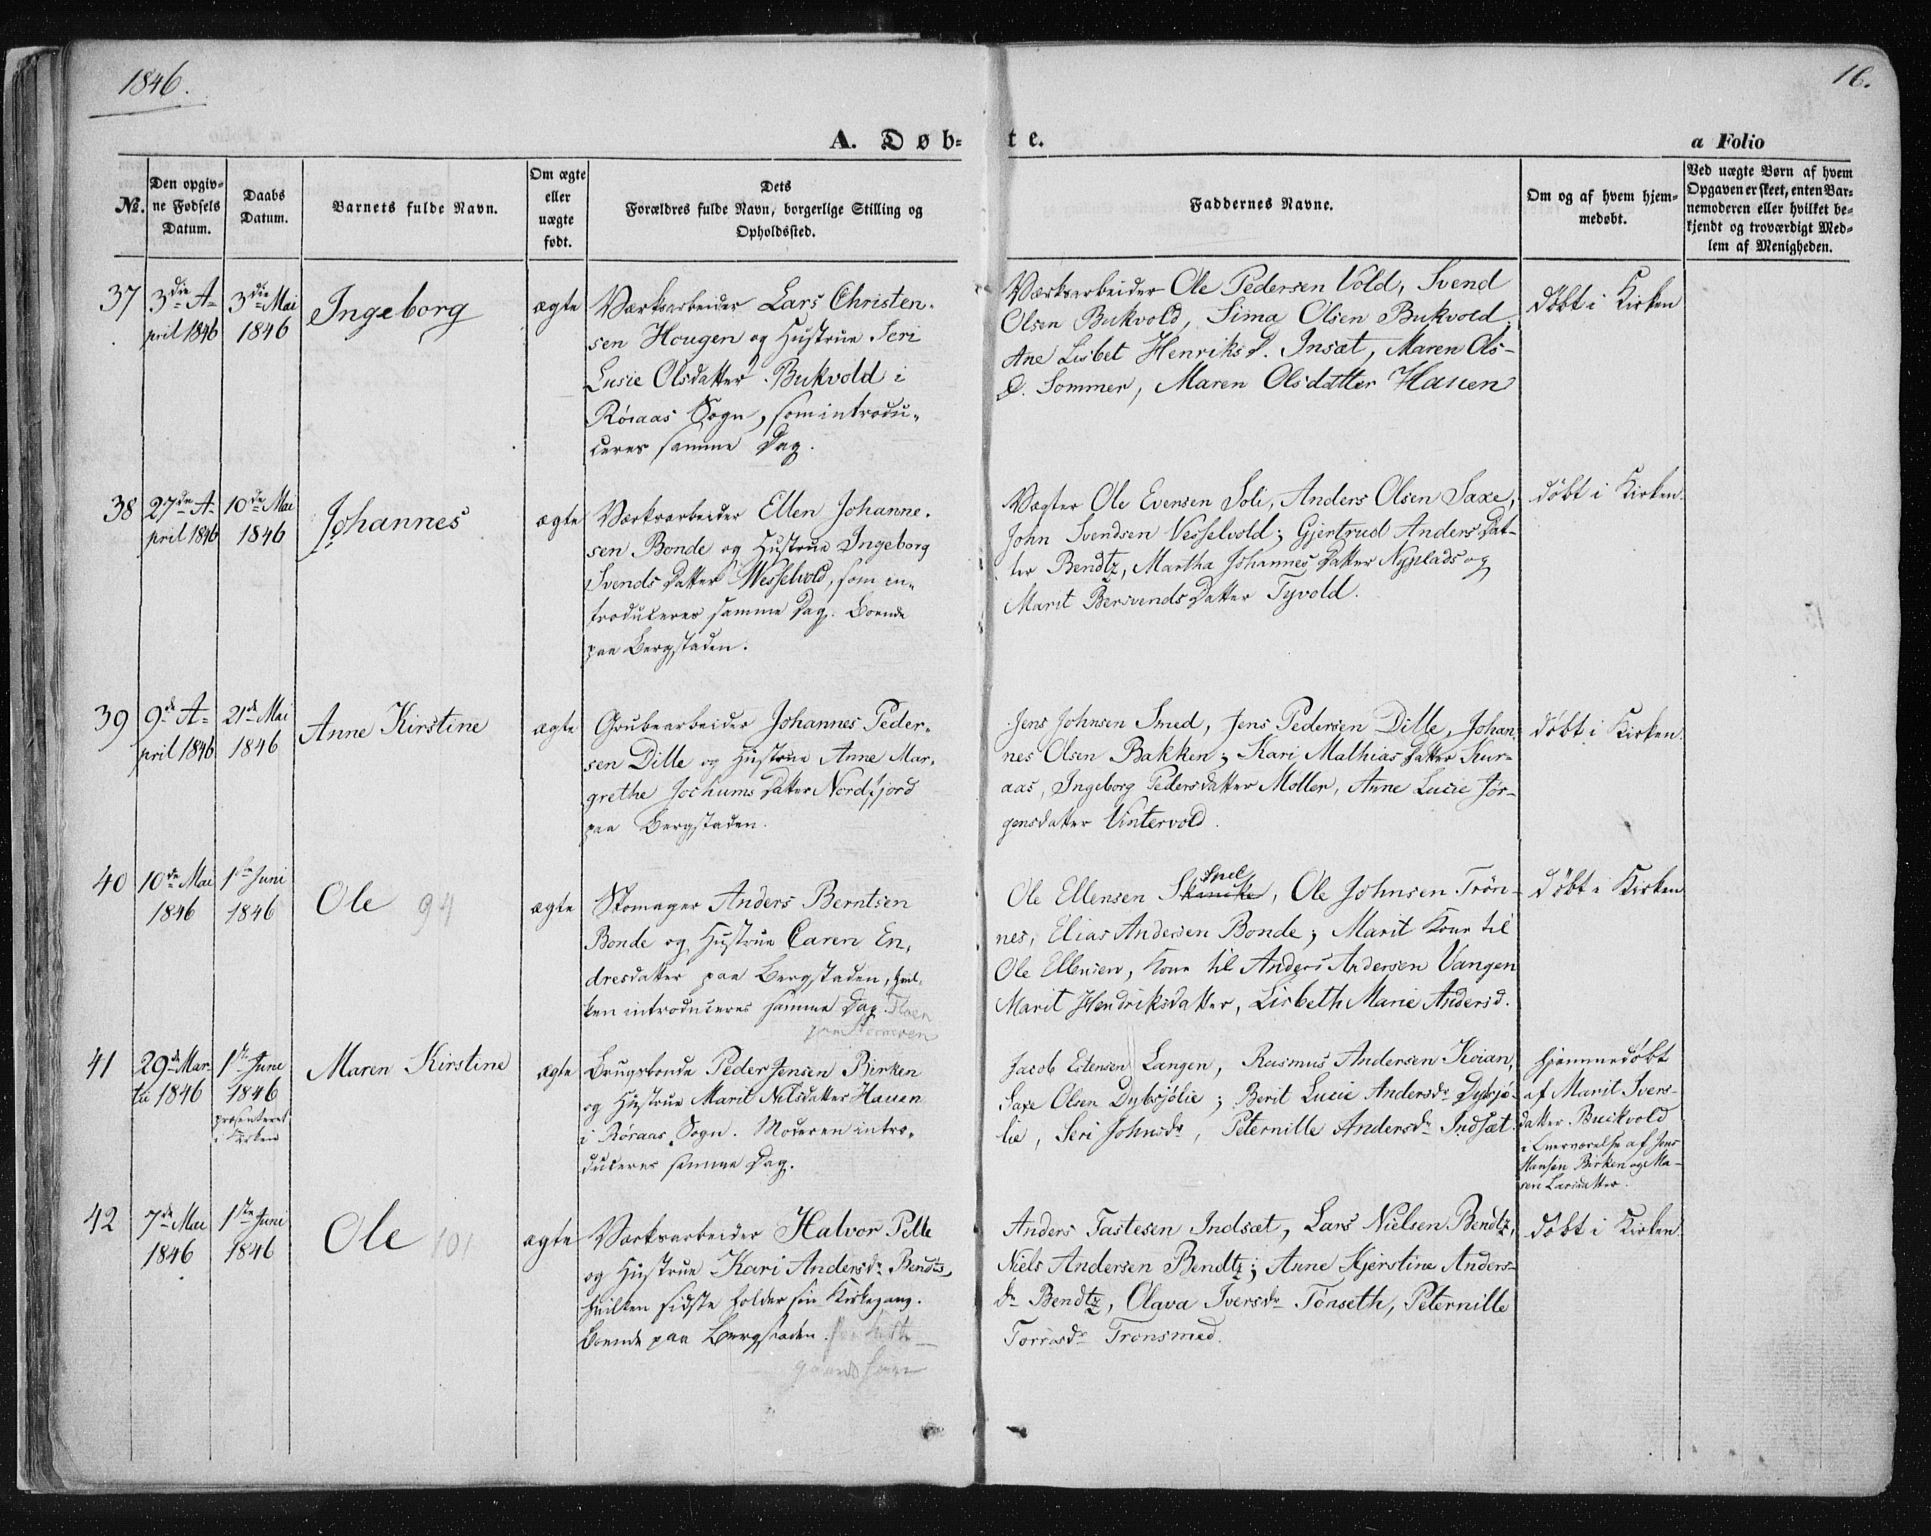 1846.
16.
A. Døb=
te.
a Folio
No.
Den opgiv=
ne Fødsels
Datum.
Daabs
Datum.
Barnets fulde Navn.
Om ægte
eller
uægte
født.
Dets
Forældres fulde Navn, borgerlige Stilling og
Opholdssted.
Faddernes Navne.
Om og af hvem hjem=
medøbt.
Ved uægte Børn af hvem
Opgaven er skeet, enten Bar=
nemoderen eller hvilket be=
kjendt og troværdigt Med=
lem af Menigheden.
37
3die A-
pril 1846
3die Mai
1846
Ingeborg
ægte
Værksarbeider Lars Christen-
sen Hougen og Hustrue Seri
Lusie Olsdatter Bukvold i
Röraas Sogn, som introdu-
ceres samme Dag.
Værksarbeider Ole Pedersen Vold, Svend
Olsen Bukvold, Sima Olsen Bukvold,
Ane Lisbet Henriksd. Insæt, Maren Ols-
D. Sommer, Maren Olsdatter Hauen
døbt i Kirken
38
27de A-
pril 1846
10de Mai
1846
Johannes
ægte
Værksarbeider Ellen Johanne-
sen Bonde og Hustrue Ingeborg
Svends Datter Wesselvold, som in-
troduceres samme Dag. Boende
paa Bergstaden.
Vægter Ole Evensen Soli, Anders Olsen Saxe,
John Svendsen Vesselvold; Gjertrud Anders Dat-
ter Bendtz, Martha Johannes Datter Nyplads og
Marit Bersvends Datter Tyvold.
døbt i Kirken.
39
9de A-
pril 1846
21de Mai
1846
Anne Kirstine
ægte
Grubearbeider Johannes Peder-
sen Dille og Hustrue Anne Mar-
grethe Jochums Datter Nordfjord
paa Bergstaden.
Jens Johnsen Smed, Jens Pedersen Dille, Johan-
nes Olsen Bakken; Kari Mathias Datter Kur-
aas, Ingeborg Pedersdatter Möller, Anne Lucie Jör-
gensdatter Vintervold.
døbt i Kirken.
40
10de Mai
1846
1ste Juni
1846
Ole 94
ægte
Skomager Anders Berntsen
Bonde og Hustrue Caren En-
dresdatter paa Bergstaden, hvil-
ken introduceres samme Dag.
Snel
Ole Ellensen Skancke, Ole Johnsen Trön-
nes, Elias Andersen Bonde; Marit Kone til
Ole Ellensen, Kone til Anders Andersen Vangen
Marit Hendriksdatter, Lisbeth Marie Andersd.
døbt i Kirken
41
29de Mar
ts 1846
1ste June
1846
præsenteret
i Kirken
Maren Kirstine
ægte
Brugsbonde Peder Jensen Birken
og Hustrue Marit Nilsdatter Hauen
i Röraas Sogn. Moderen intro-
duceres samme Dag.
Jacob Estensen Langen, Rasmus Andersen Koian,
Saxe Olsen Dybsjölie; Berit Lucie Andersdr Dybsjö-
lie, Seri Johnsdr, Peternille Andersdr Indsæt.
hjemmedøbt
af Marit Ivers-
datter Buckvold
i Overværelse af Jens
Hansen Birken og Ma-
ren Larsdatter.
42
7de Mai
1846
1ste Juni
1846
Ole 101
ægte
Værksarbeider Halvor Pelle
og Hustrue Kari Andersdr Bendtz,
hvilken sidste holder sin Kirkegang.
Boende paa Bergstaden.
Anders Tastesen Indsæt, Lars Nielsen Bendtz,
Niels Andersen Bendtz; Anne Kjerstine Anders-
dr Bendtz, Olava Iversdr Tönseth, Peternille
Torresdr Tronsmed.
døbt i Kirken.